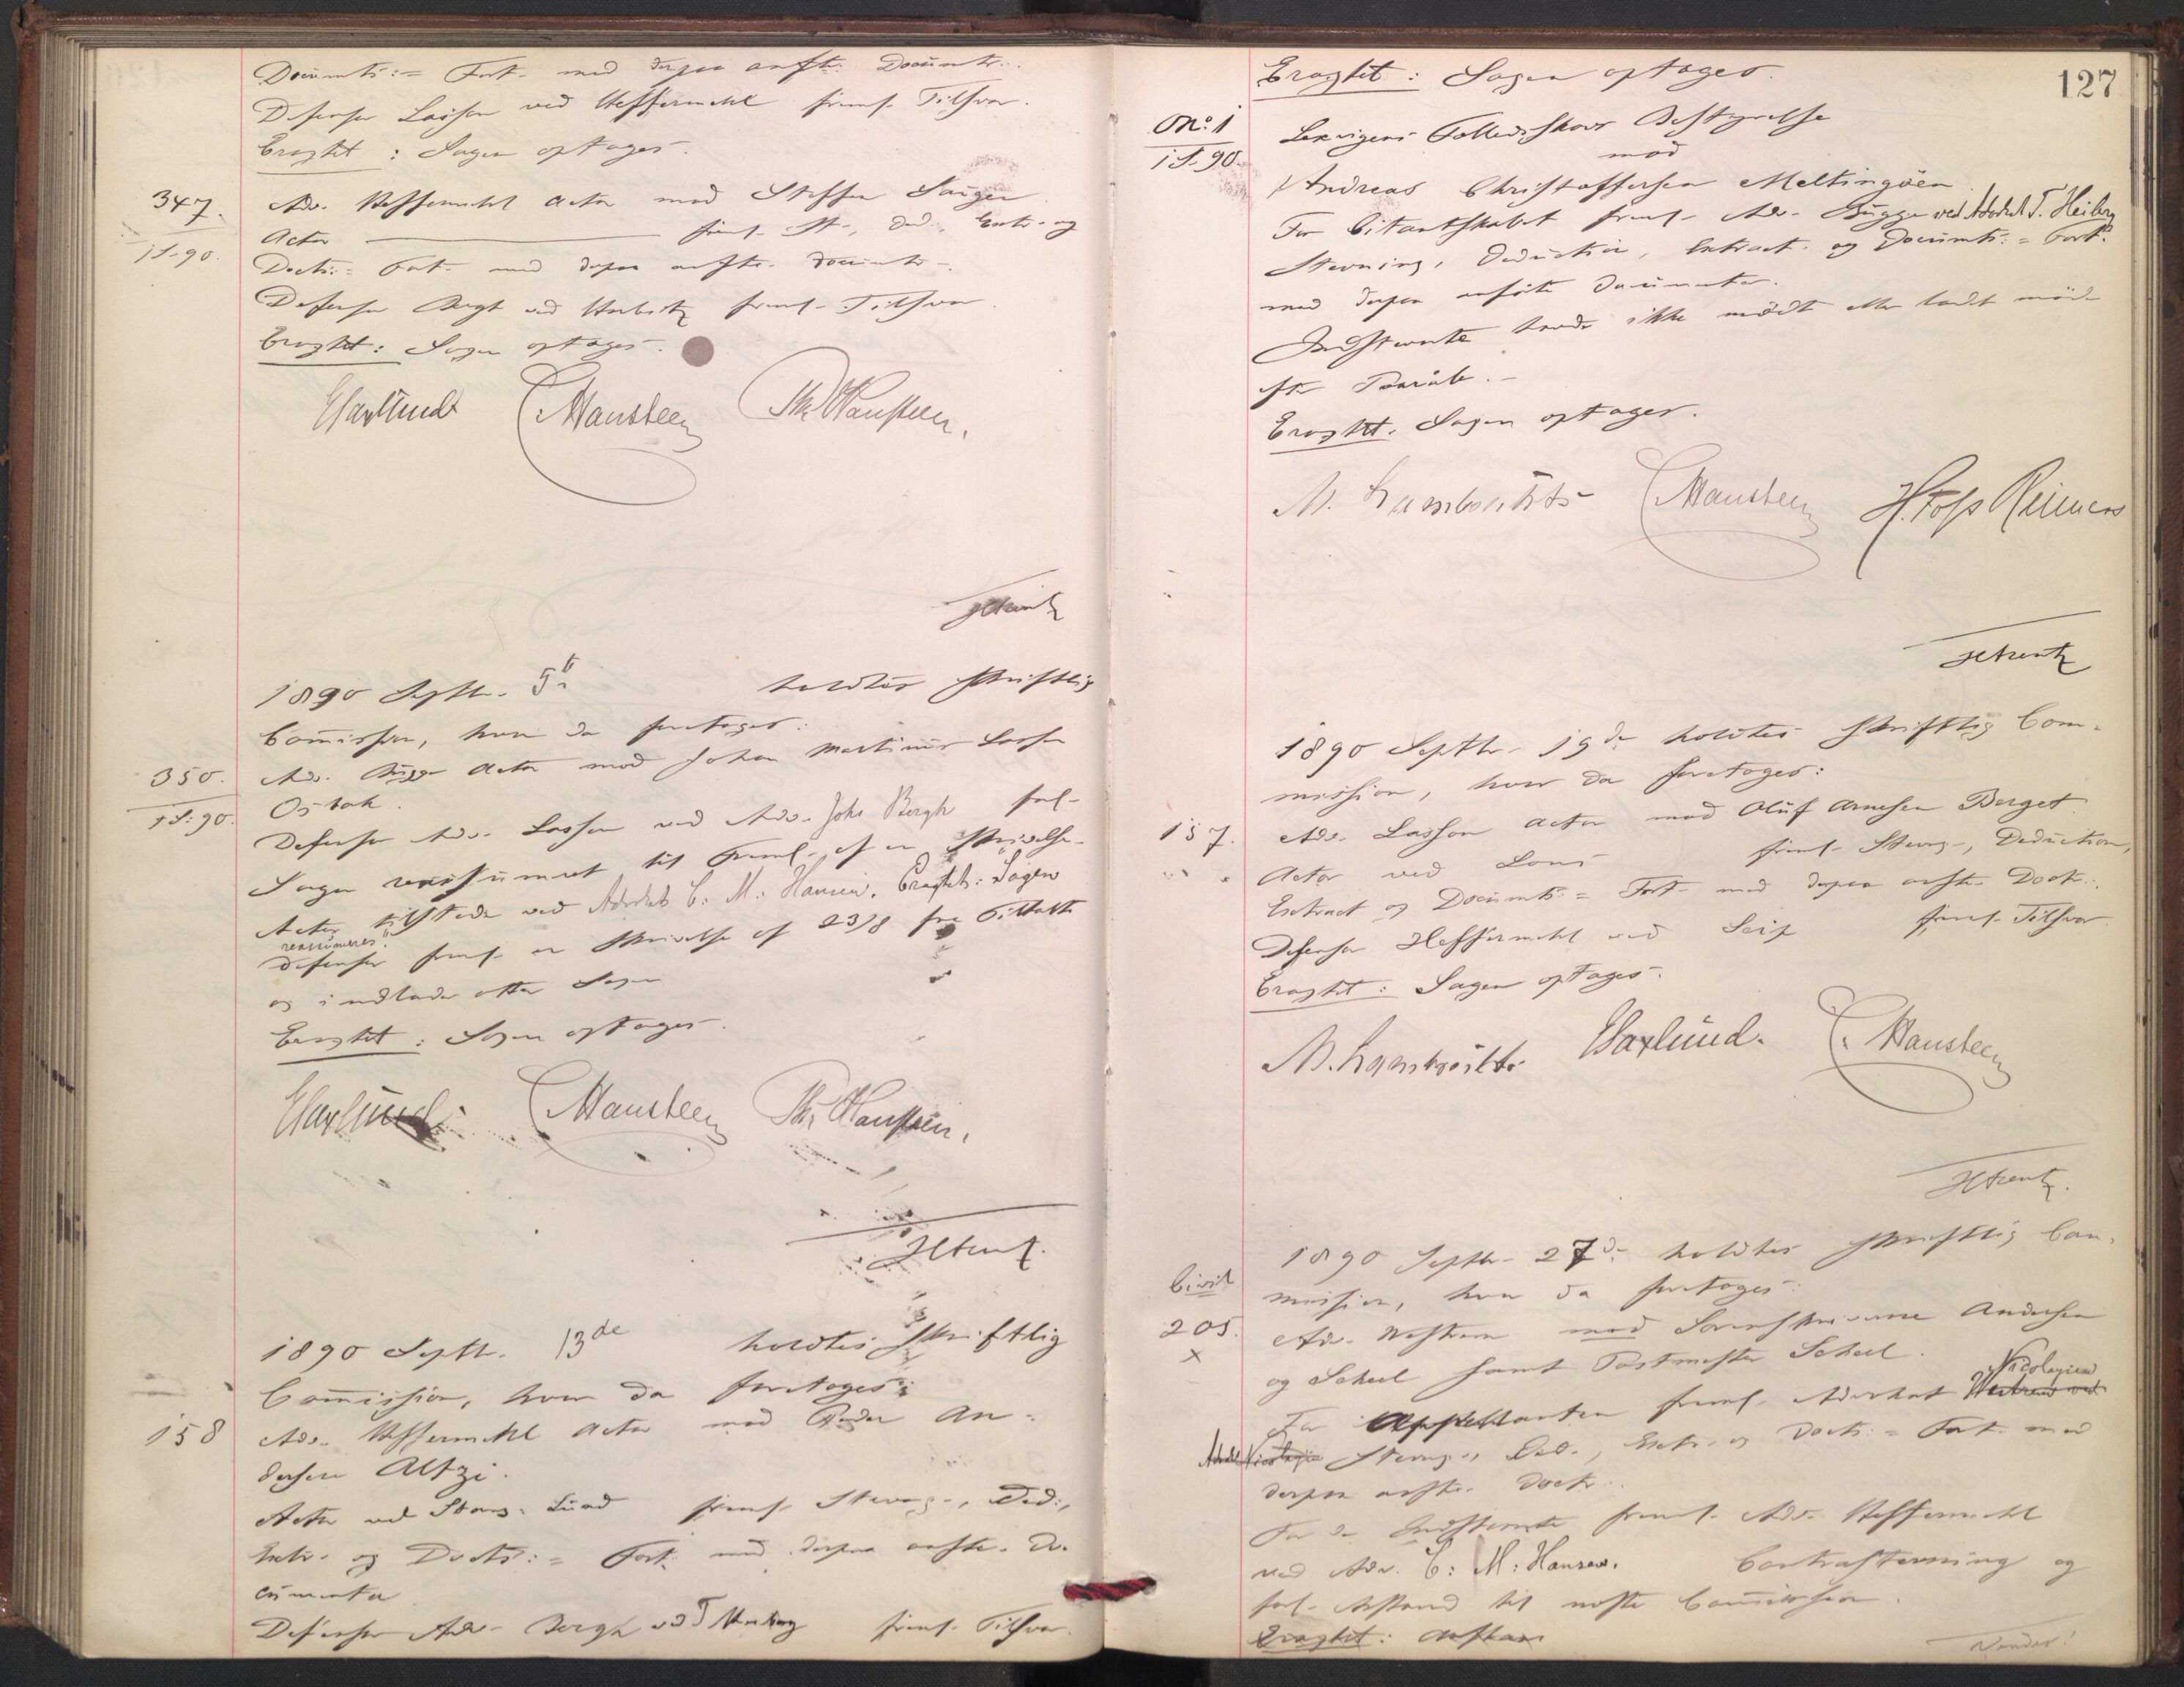 Documts:= Fort. med derpaa anførte Documtr.
Defensor Lasson ved Heffermehl freml. Tilsvar.
Eragtet: Sagen optages.
347.
1S.90.
Adv. Heffermehl Actor mod Steffen
Actor freml. St., Ded., Extr. og
Docts:= Fort. med derpaa anførte Documtr.
Defensor Bergh ved freml. Tilsvar.
Eragtet: Sagen optages.
ESaxlund CHansteen
1890 Septbr. 5te holdtes skriftlig
Comission, hvor da foretoges:
350.
1S.90.
Adv. Bugge Actor mod Johan Martinus Larsen
Osbak.
Defensor Adv. Lasson ved Adv. Johs Bergh
Sagen reassumeret til freml. af en Skrivelse
Actor tilstede ved Advokat C. M. Hansen. Eragtet: Sagen
reassumeres.
Defensor freml. en Skrivelse af 23/8 fra Tiltalte
og indlader atter Sagen
Eragtet: Sagen optages.
ESaxlund. CHansteen
1890 Septbr. 13de holdtes skriftlig
Comission, hvor da foretoges:
158
Adv. Heffermehl Actor mod Peder An-
dersen
Actor ved freml. Stevng., Ded.,
Extr. og Docts:= Fort. med derpaa anførte Do-
cumenter
Defensor Adv. Bergh ved T Heiberg freml. Tilsvar.
127
Eragtet: Sagen optages.
No. 1
1S.90.
Lexvigens Fællesskovs Bestyrelse
mod
Andreas Christoffersen Meltingöen
For Citantskabet freml. Adv. Bugge ved Advokat T. Heiberg
Stevning, Deduction, Extract og Documts:= Fort.
med derpaa anførte Documenter.
Indstevnte havde ikke mødt eller ladt møde
efter Paaraab.
Eragtet: Sagen optages.
CHansteen H. Foss Reimers
1890 Septbr. 19de holdtes skriftlig Com-
mission, hvor da foretoges:
157.
Adv. Lasson Actor mod Oluf Arnesen Berget.
Actor ved freml. Stevng., Deduction,
Extract og Documts:= Fort. med derpaa anførte Doctr.
Defensor Heffermehl ved Seip freml. Tilsvar
Eragtet: Sagen optages.
ESaxlund. CHansteen
1890 Septbr. 27de holdtes skriftlig Com-
mission, hvor da foretoges:
Civil
205.
×
Adv. mod Sorenskriverne Andersen
og Scheel samt Postmester Scheel.
For Appellanten freml. Advokat Nicolaysen
Stevng., Ded., Extr. og Docts:= Fort. med
derpaa anførte Doctr.
For de Indstevnte freml. Adv. Heffermehl
ved Adv. C: M: Hansen. Contrastevning og
forl. Anstand til næste Comission.
Eragtet: Anstand
Vendes!